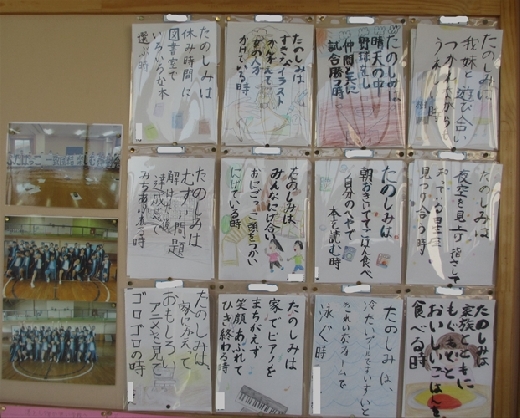 たのしみは
我妹と遊び合い
つかれたからと
たのしみは
晴天の中
野球をし
仲間と共に
試合勝つ時
たのしみは
すきなイラスト
かんがえて
かけている時
たのしみは
休み時間に
図書室で
いろいろな本
選ぶ時
たのしみは
夜空を見上げ
指さして
見つけ合う時
たのしみは
朝おきてすぐごはん食べ
自分のへやで
本を読む時
たのしみは
みんなにげ合い
おにごっこ
にげている時
たのしみは
むずい問題
たのしみは
家族とともに
もぐもぐと
おいしいごはんを
食べる時
たのしみは、
冷たいプールをすいすいと
きれいなフォームで
泳ぐ時
たのしみは
家でピアノを
まちがえず
笑顔あふれて
ひき終わる時
たのしみは、
家にかえって
おもしろい
アニメを見て
ゴロゴロの時